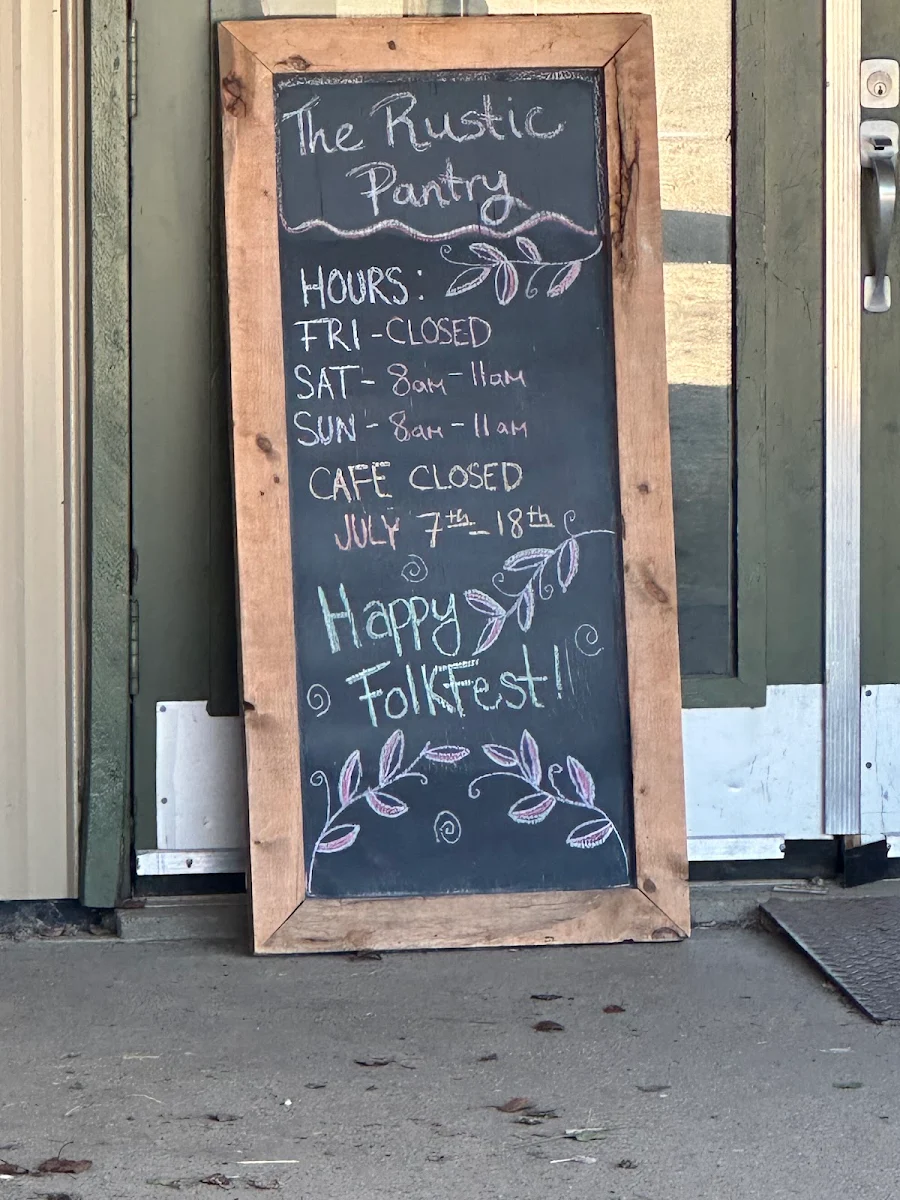 The Rustic
Pantry
HOURS:
FRI - CLOSED
SAT - 8am - 11am
SUN - 8am - 11am
CAFE CLOSED
JULY 7th - 18th
Happy
FolkFest!